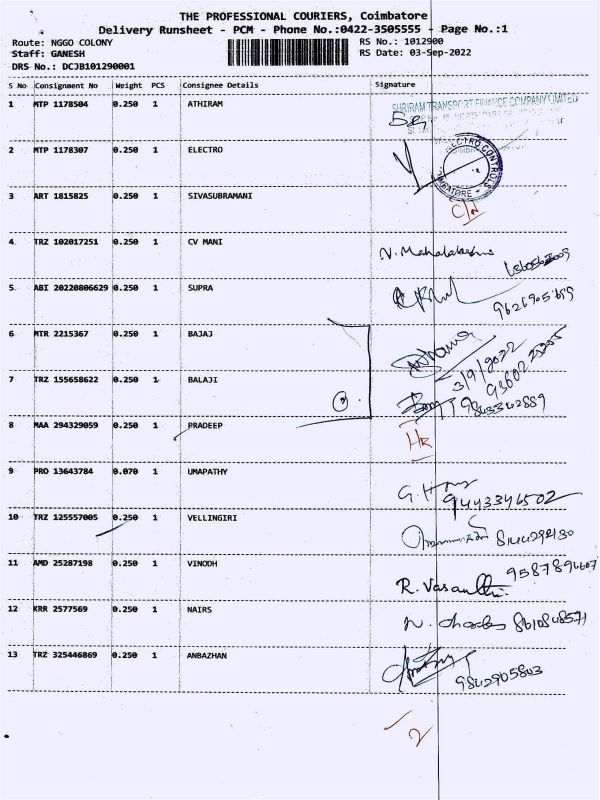 THE PROFESSIONAL COURIERS, Coimbatore
Delivery Runsheet - PCM - Phone No.:0422-3505555 - Page No.:1
Route: NGGO COLONY RS No.: 1012900
Staff: GANESH RS Date: 03-Sep-2022
DRS No.: DCJB101290001
S No Consignment No Weight PCS Consignee Details Signature
1 MTP 1178504 0.250 1 ATHIRAM
SHRIRAM TRANSPORT FINANCE COMPANY LIMITED
2 MTP 1178307 0.250 1 ELECTRO
ELECTRO CONTROLS
COIMBATORE
3 ART 1815825 0.250 1 SIVASUBRAMANI
C/N
4 TRZ 102017251 0.250 1 CV MANI
5 ABI 20220806629 0.250 1 SUPRA
9626905659
6 MTR 2215367 0.250 1 BAJAJ
3/9/2022
7 TRZ 155658622 0.250 1 BALAJI
9843342889
8 MAA 294329059 0.250 1 PRADEEP
HR
9 PRO 13643784 0.070 1 UMAPATHY
9443346502
10 TRZ 125557005 0.250 1 VELLINGIRI
11 AMD 25287198 0.250 1 VINODH
R. Vasanthi
12 KRR 2577569 0.250 1 NAIRS
8610848571
13 TRZ 325446869 0.250 1 ANBAZHAN
9842905803
2